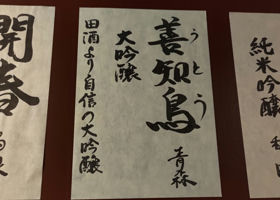 純米吟醸
善知鳥
うとう
青森
大吟醸
田酒より自信の大吟醸
開春